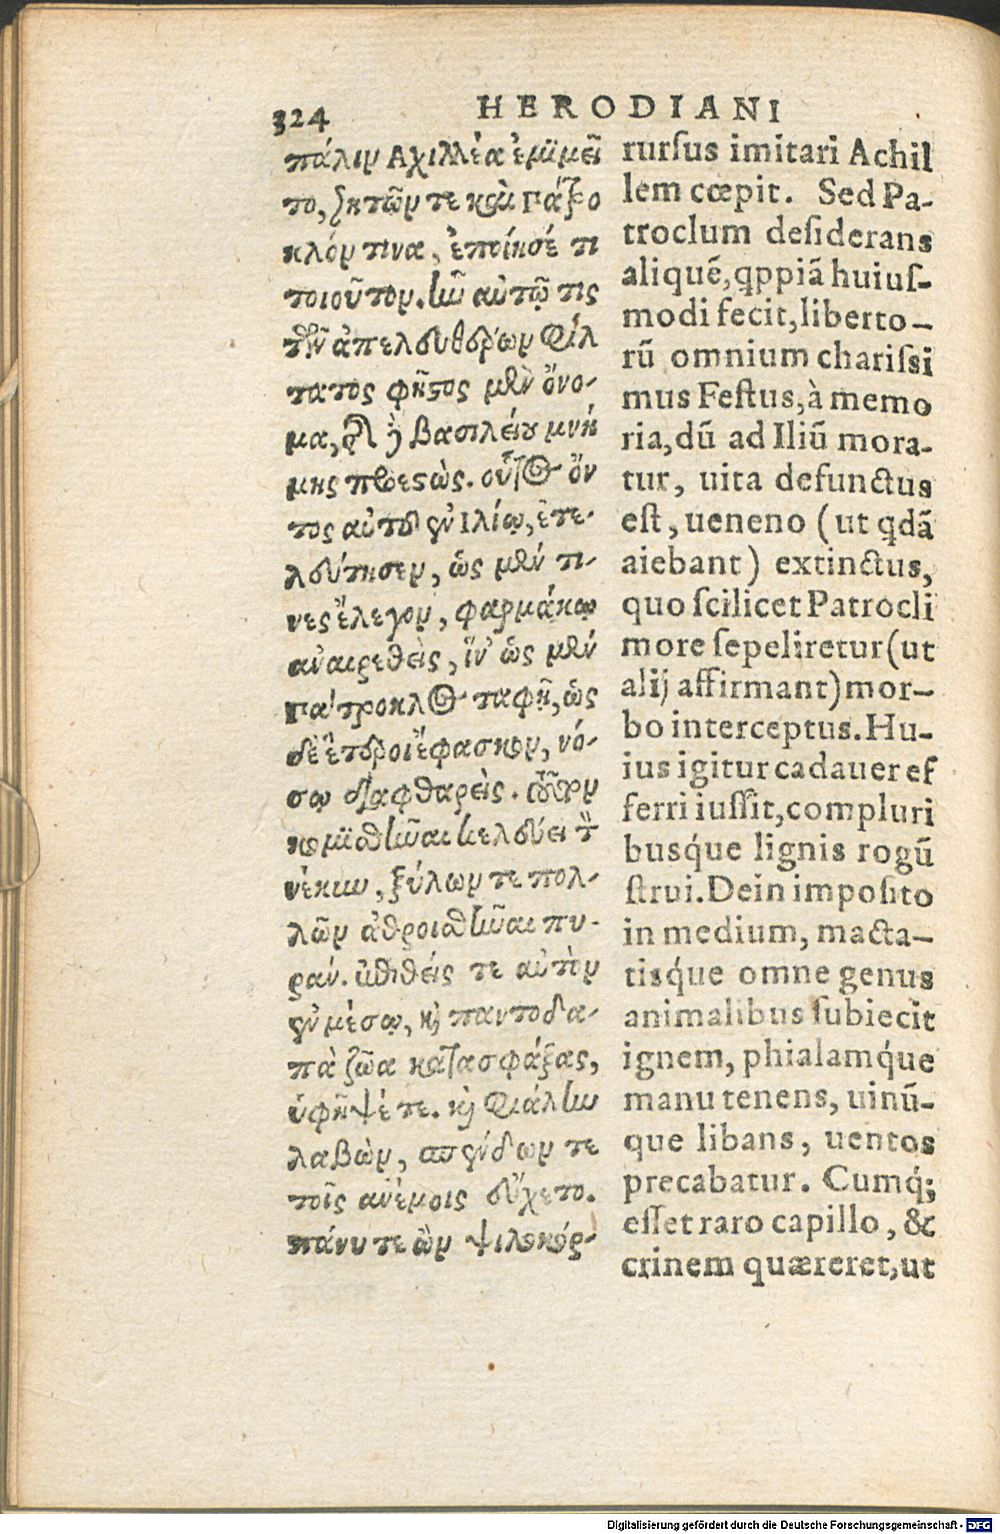 324
HERODIANI
πάλιν Αχιλλέα ἐμιμεῖ
το, ζητῶν τε καὶ Πάτρο
κλόν τινα, ἐποίησέ τι
τοιοῦτον. ἦν αὐτῷ τις
τῶν ἀπελευθέρων φίλ
τατος φῆστος μὲν ὄνο-
μα, τῆς δὲ βασιλείου μνή
μης προεστώς. οὗτος ὄν
τος αὐτοῦ ἐν Ιλίῳ, ἐτε-
λεύτησεν, ὡς μέν τι-
νες ἔλεγον, φαρμάκῳ
ἀναιρεθεὶς, ἵν' ὡς μὲν
Πάτροκλος ταφῇ, ὡς
δὲ ἕτεροι ἔφασκον, νό-
σῳ διαφθαρείς. τοῦτον
κομισθῆναι κελεύει τὸν
νέκυν, ξύλων τε πολ-
λῶν ἀθροισθῆναι πυ-
ράν. ἐπιθείς τε αὐτὸν
ἐν μέσῳ, καὶ παντοδα-
πὰ ζῶα κατασφάξας,
ὑφῆψέ τε. καὶ φιάλην
λαβὼν, σπένδων τε
τοῖς ἀνέμοις εὔχετο.
πάνυ τε ὢν ψιλοκόρ-
rursus imitari Achil
lem cœpit. Sed Pa-
troclum desiderans
aliquē, qppiā huius-
modi fecit, liberto-
rū omnium charissi
mus Festus, à memo
ria, dū ad Iliū mora-
tur, uita defunctus
est, ueneno (ut qdā
aiebant) extinctus,
quo scilicet Patrocli
more sepeliretur (ut
alij affirmant) mor-
bo interceptus. Hu-
ius igitur cadauer ef
ferri iussit, compluri
busq́ue lignis rogū
strui. Dein imposito
in medium, macta-
tisq́ue omne genus
animalibus subiecit
ignem, phialamq́ue
manu tenens, uinū-
que libans, uentos
precabatur. Cumq́;
esset raro capillo, &
crinem quæreret, ut
Digitalisierung gefördert durch die Deutsche Forschungsgemeinschaft - DFG